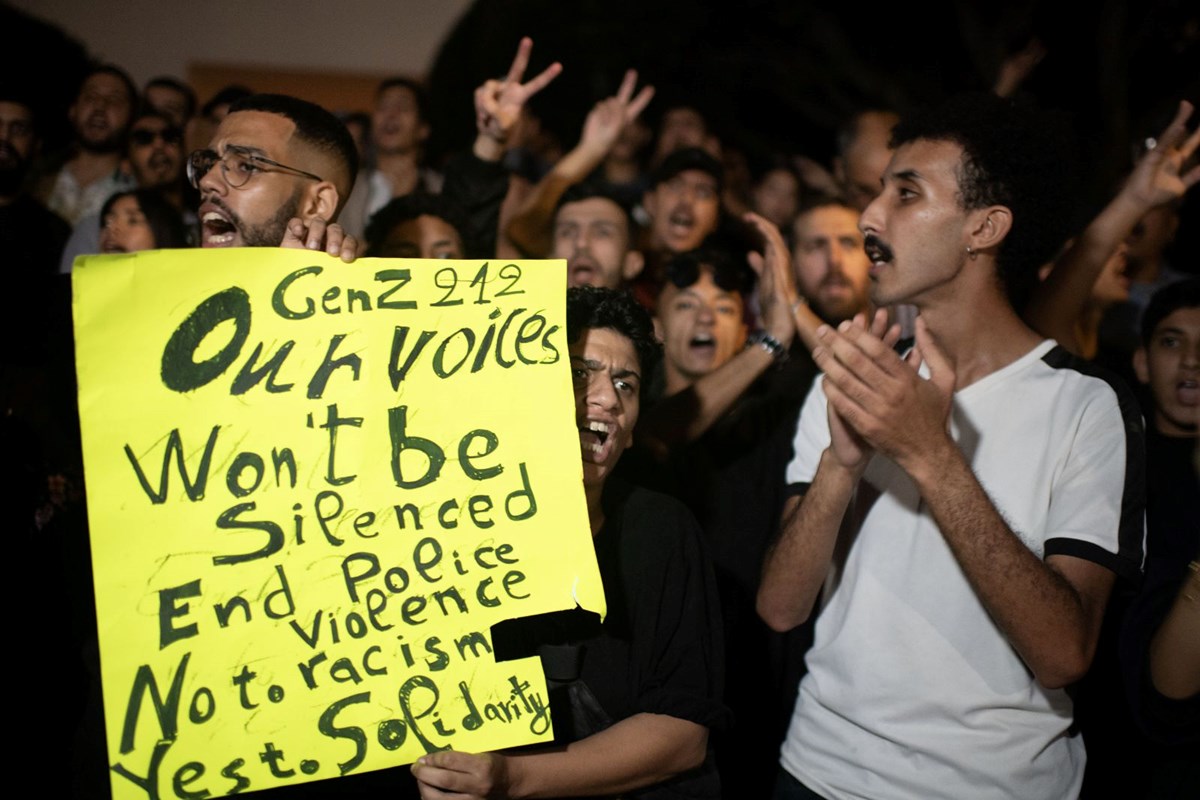 GenZ 212
Our voices
Won't be
Silenced
End Police
violence
No to racism
Yes to Solidarity